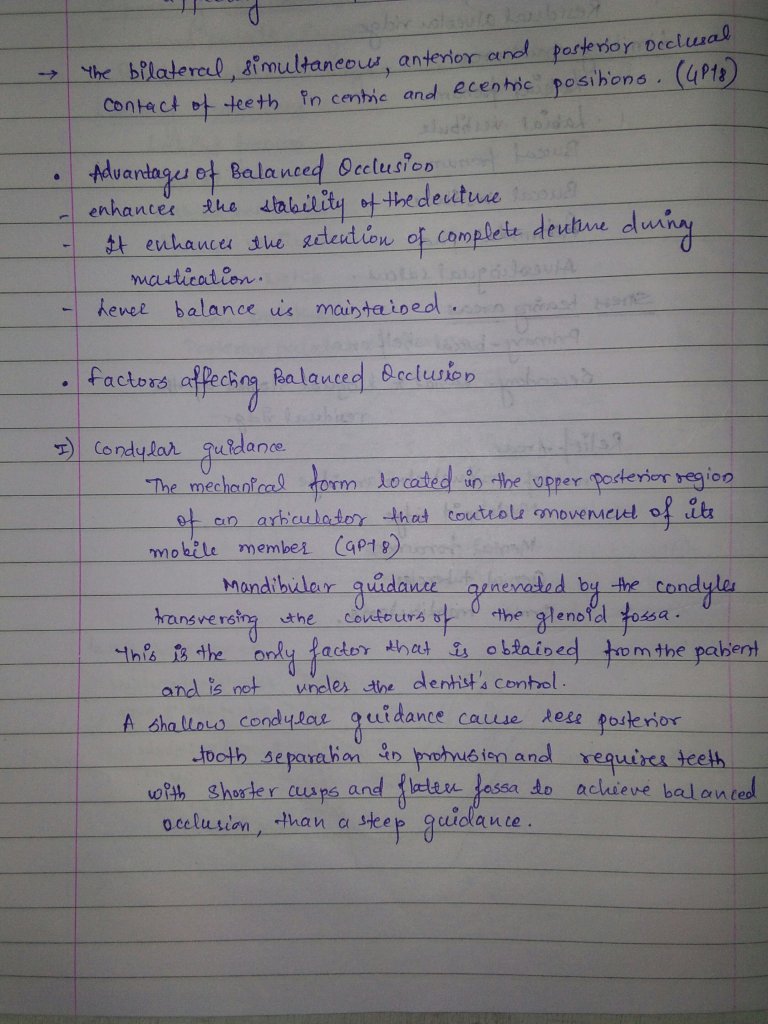 → The bilateral, simultaneous, anterior and posterior occlusal
contact of teeth in centric and ecentric positions. (GPT8)
• Advantages of Balanced Occlusion
- enhances the stability of the denture
- It enhances the retention of complete denture during
mastication.
- hence balance is maintained.
• factors affecting Balanced Occlusion
I) Condylar guidance
The mechanical form located in the upper posterior region
of an articulator that controls movement of its
mobile member (GPT8)
Mandibular guidance generated by the condyles
transversing the contours of the glenoid fossa.
This is the only factor that is obtained from the patient
and is not under the dentist's control.
A shallow condylar guidance cause less posterior
tooth separation in protrusion and requires teeth
with shorter cusps and flatter fossa to achieve balanced
occlusion, than a steep guidance.